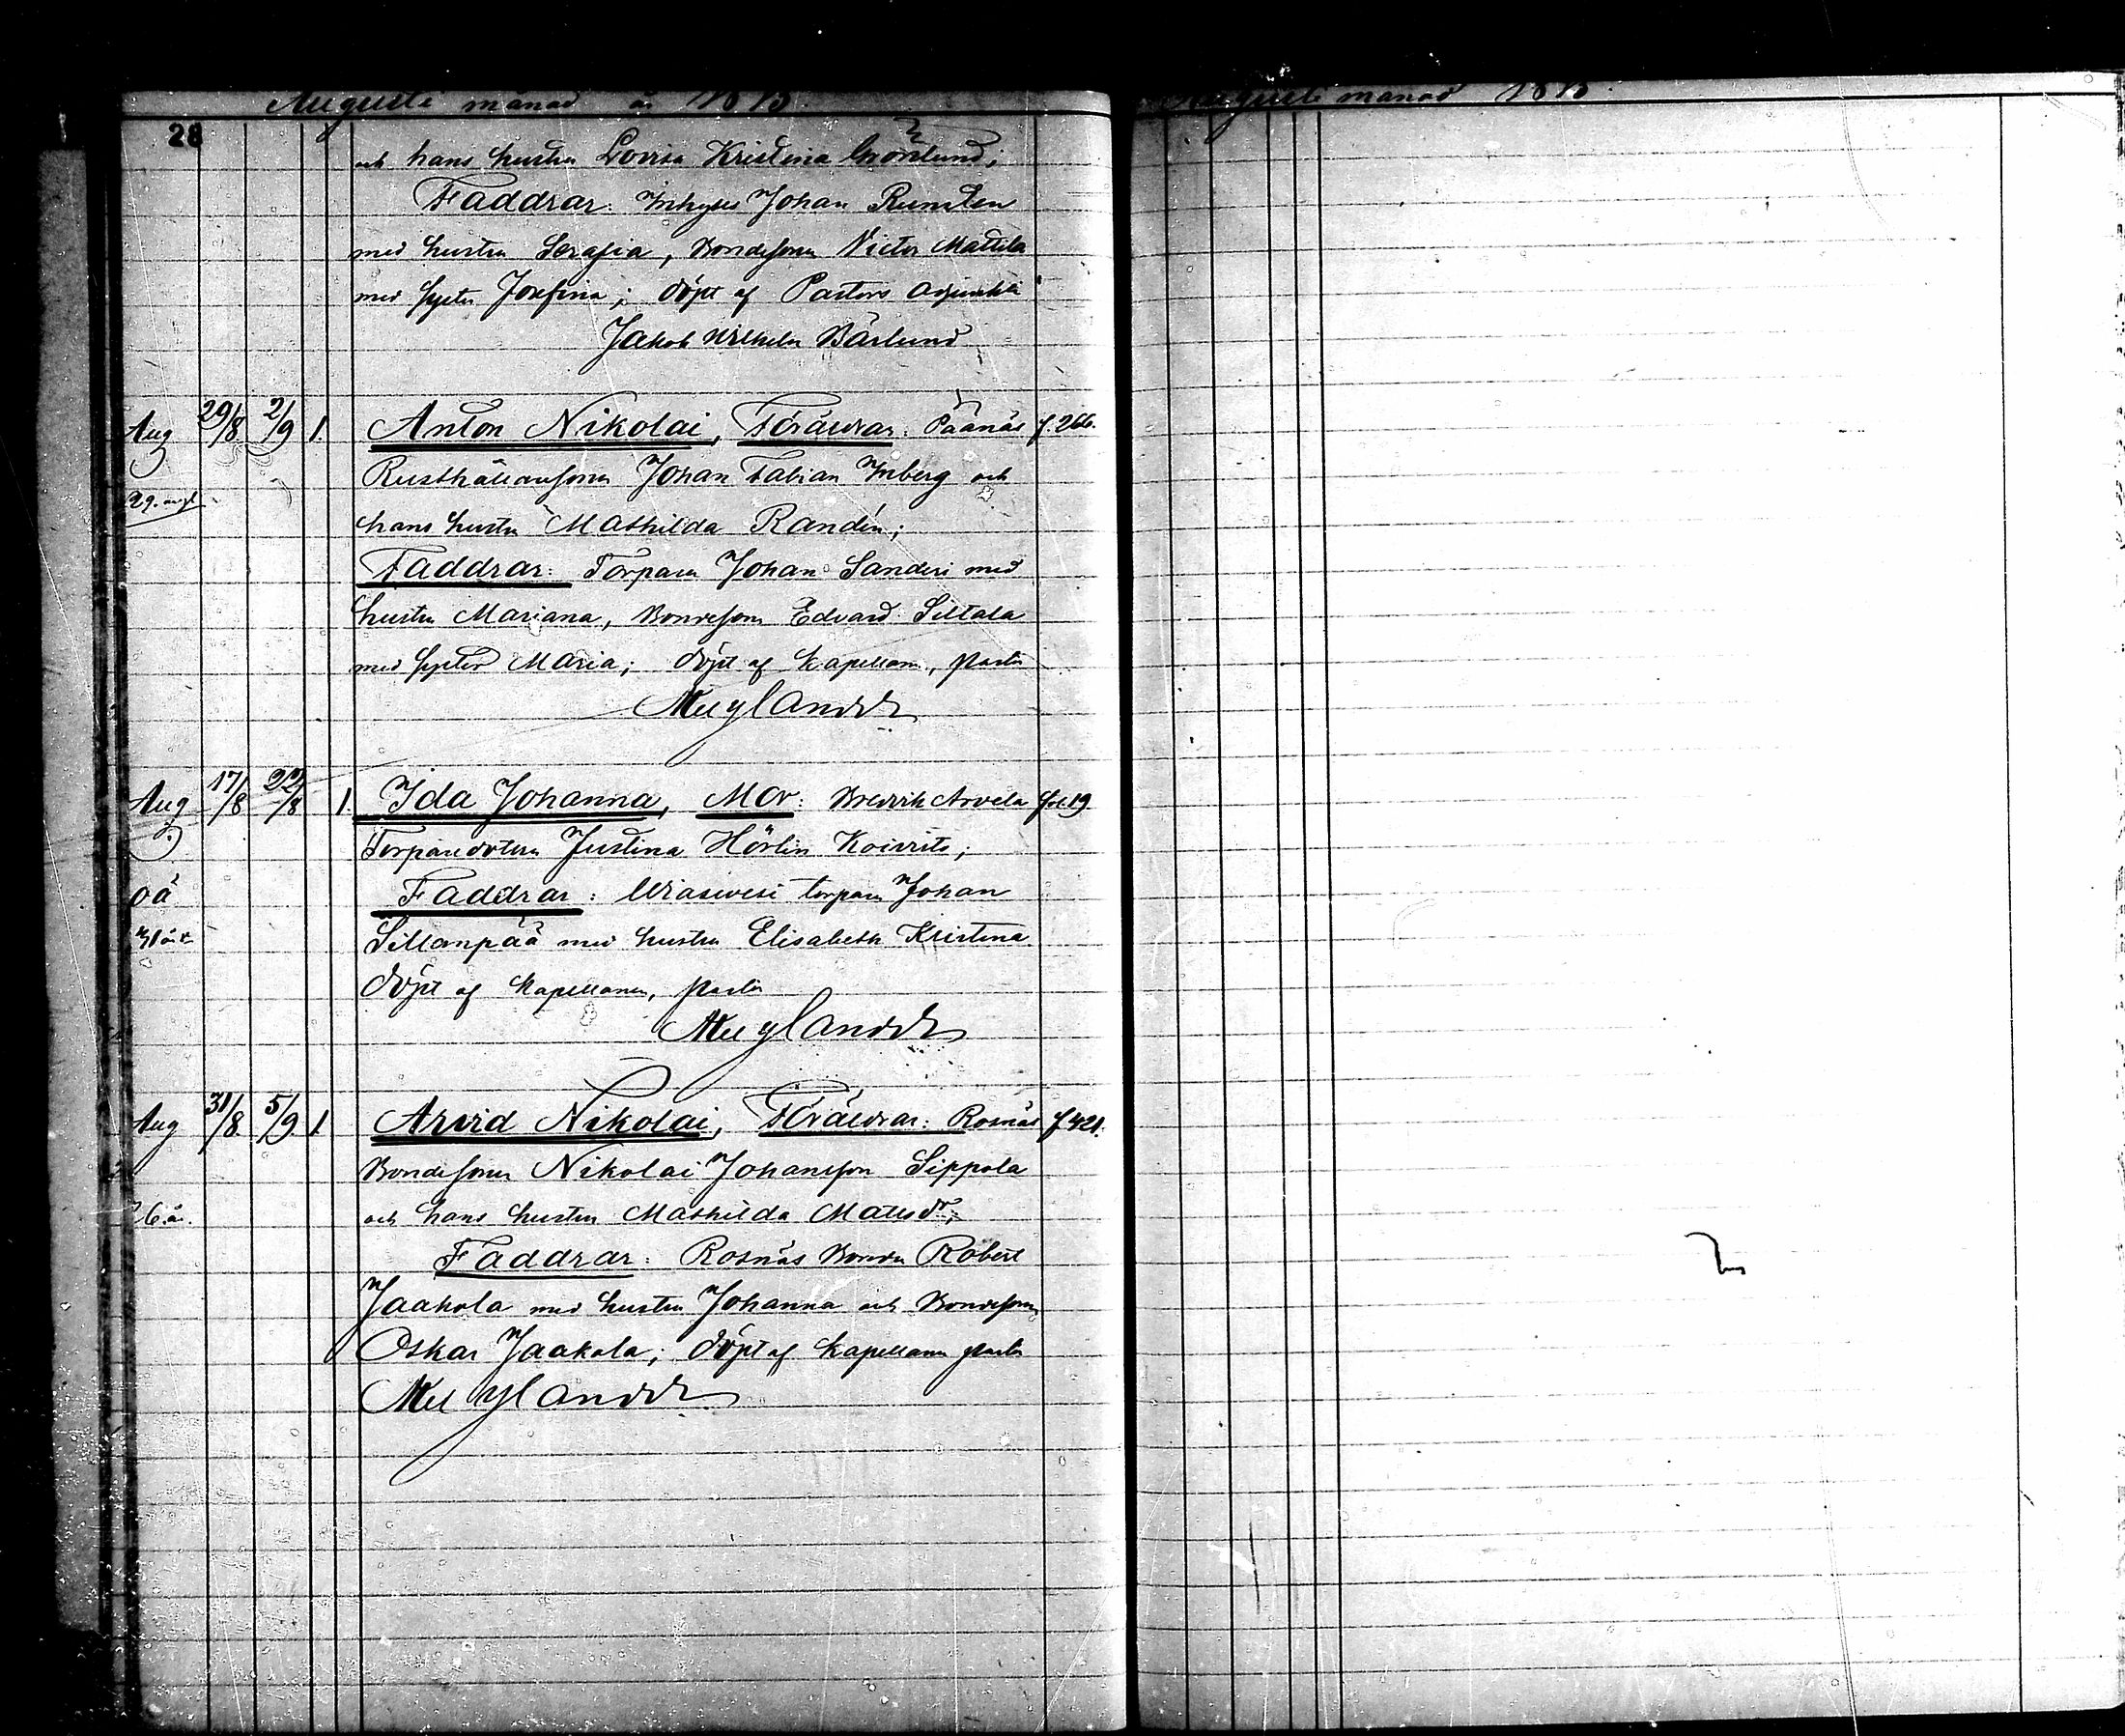 Augusti månad år 1875.
Augusti månad 1875.
28
och hans hustru Lovisa Kristina Grönlund,
Faddrar: Inhyses Johan Runsten
med hustru Serafia, Bondesonen Victor Mattila
med syster Josefina; döpt af Pastors adjunkten
Jakob Wilhelm Bärlund
Aug 29/8 2/9 1. Anton Nikolai, Föräldrar: Påänäs f. 266.
Rusthållaresonen Johan Fabian Inberg och
29. augt
hans hustru Mathilda Randén;
Faddrar: Torparen Johan Sanderi med
hustru Mariana, Bondesonen Edvard Siltala
med syster Maria; döpt af Kapellanen, pastor
Aug 17/8 22/8 1. Ida Johanna, Mor: Bredvik Arvela fol 19
Torparedottren Justina Hörlin Koivisto;
oä Faddrar: Wiasvesi torparen Johan
Sillanpää med hustru Elisabeth Kristina
31 år
döpt af Kapellanen, pastor
Aug 31/8 5/9 1 Arvid Nikolai, Föräldrar: Rosnäs f 421.
Bondesonen Nikolai Johansson Sippola
26 år. och hans hustru Mathilda Matsdr;
Faddrar: Rosnäs Bonden Robert
Jaakola med hustru Johanna och Bondesonen
Oskar Jaakola; döpt af Kapellanen pastor